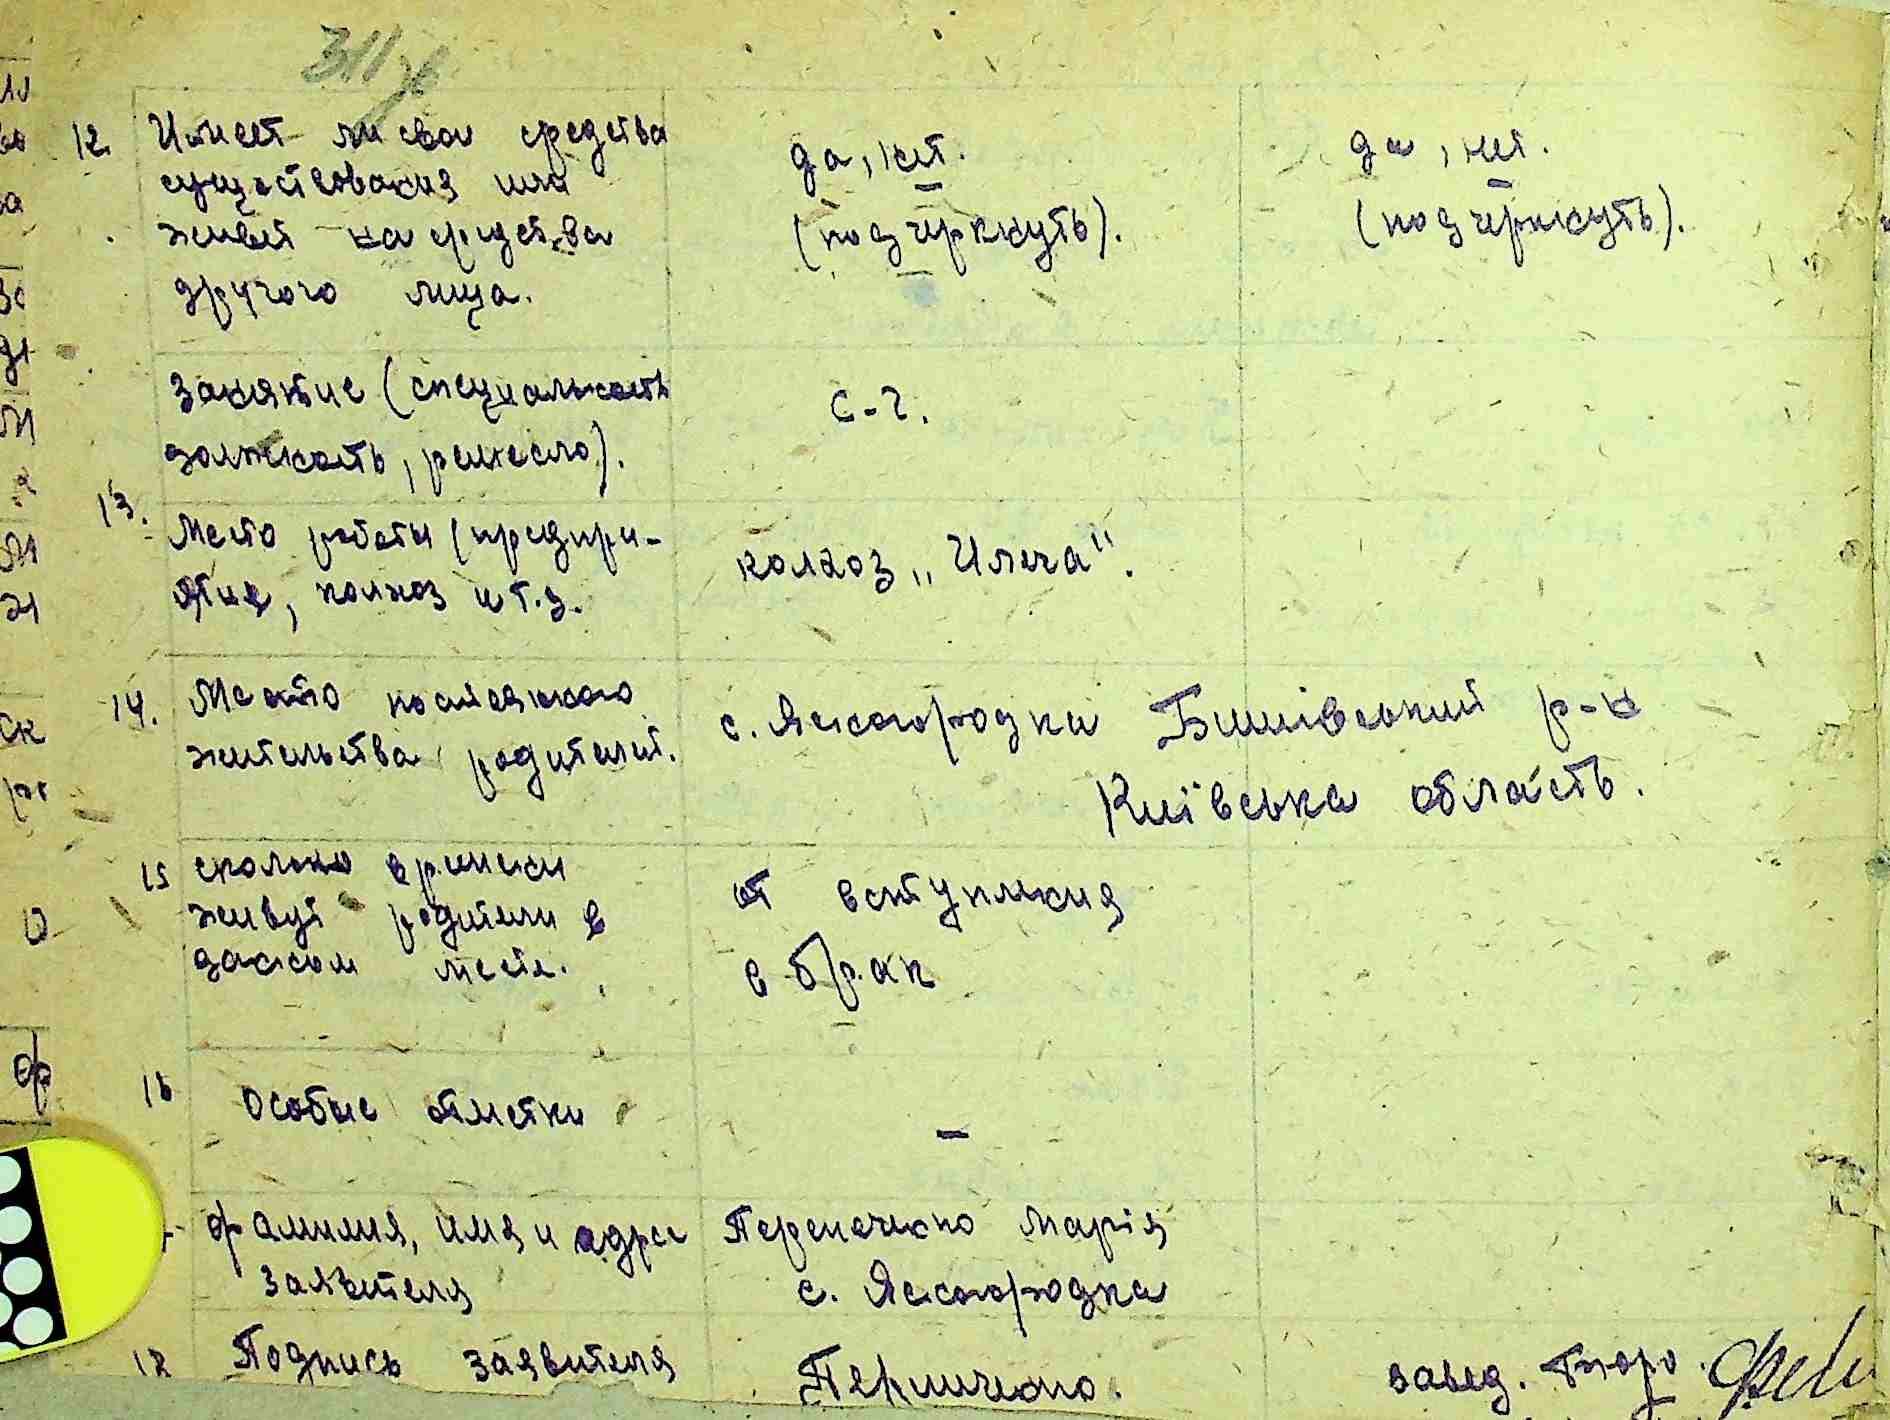 12. Имеет ли свои средства
существования или
живет на средства
другого лица.
да, нет.
(подчеркнуть).
да, нет.
(подчеркнуть).
Занятие (специальность
должность, ремесло).
с-г.
13.
Место работы (предпри-
ятие, колхоз и т.д.
колхоз „Ильича".
14. Место постоянного
жительства родителей.
с. Ясногородка Бишівський р-н
Київська область.
15 сколько времени
живут родители в
данном месте.
от вступления
в брак
16 Особые отметки
—
фамилия, имя и адрес
заявителя
Марія
с. Ясногородка
18 Подпись заявителя
завед. Бюро.